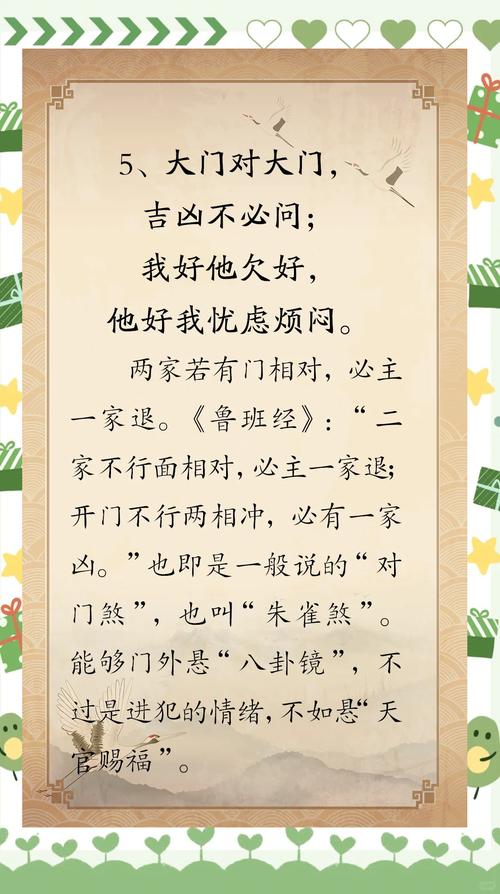 5、大门对大门，
吉凶不必问；
我好他欠好，
他好我忧虑烦闷。
两家若有门相对，必主
一家退。《鲁班经》：“二
家不行面相对，必主一家退；
开门不行两相冲，必有一家
凶。”也即是一般说的“对
门煞”，也叫“朱雀煞”。
能够门外悬“八卦镜”，不
过是进犯的情绪，不如悬“天
官赐福”。